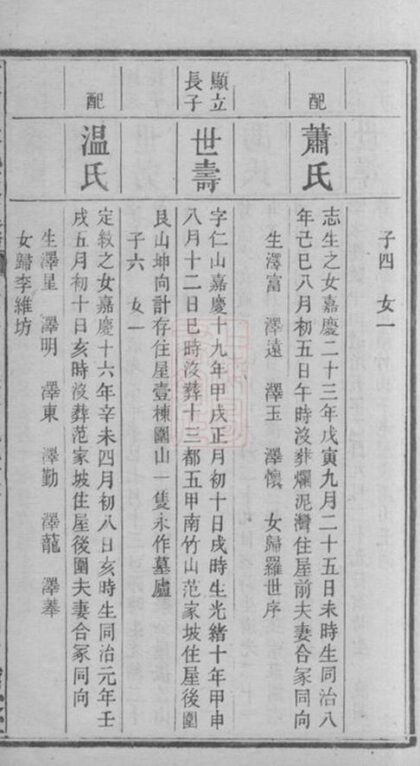 子四 女一
配 蕭氏
志生之女嘉慶二十三年戊寅九月二十五日未時生同治八
年己巳八月初五日午時沒葬爛泥灣住屋前夫妻合冢同向
生澤富 澤遠 澤玉 澤懷 女歸羅世序
顯立
長子
世壽
字仁山嘉慶十九年甲戌正月初十日戌時生光緒十年甲申
八月十二日巳時沒葬十三都五甲南竹山范家坡住屋後園
艮山坤向計存住屋壹棟園山一隻永作墓廬
子六 女一
配 温氏
定紋之女嘉慶十六年辛未四月初八日亥時生同治元年壬
戌五月初十日亥時沒葬范家坡住屋後園夫妻合冢同向
生澤星 澤明 澤東 澤勤 澤龍 澤蓁
女歸李維坊